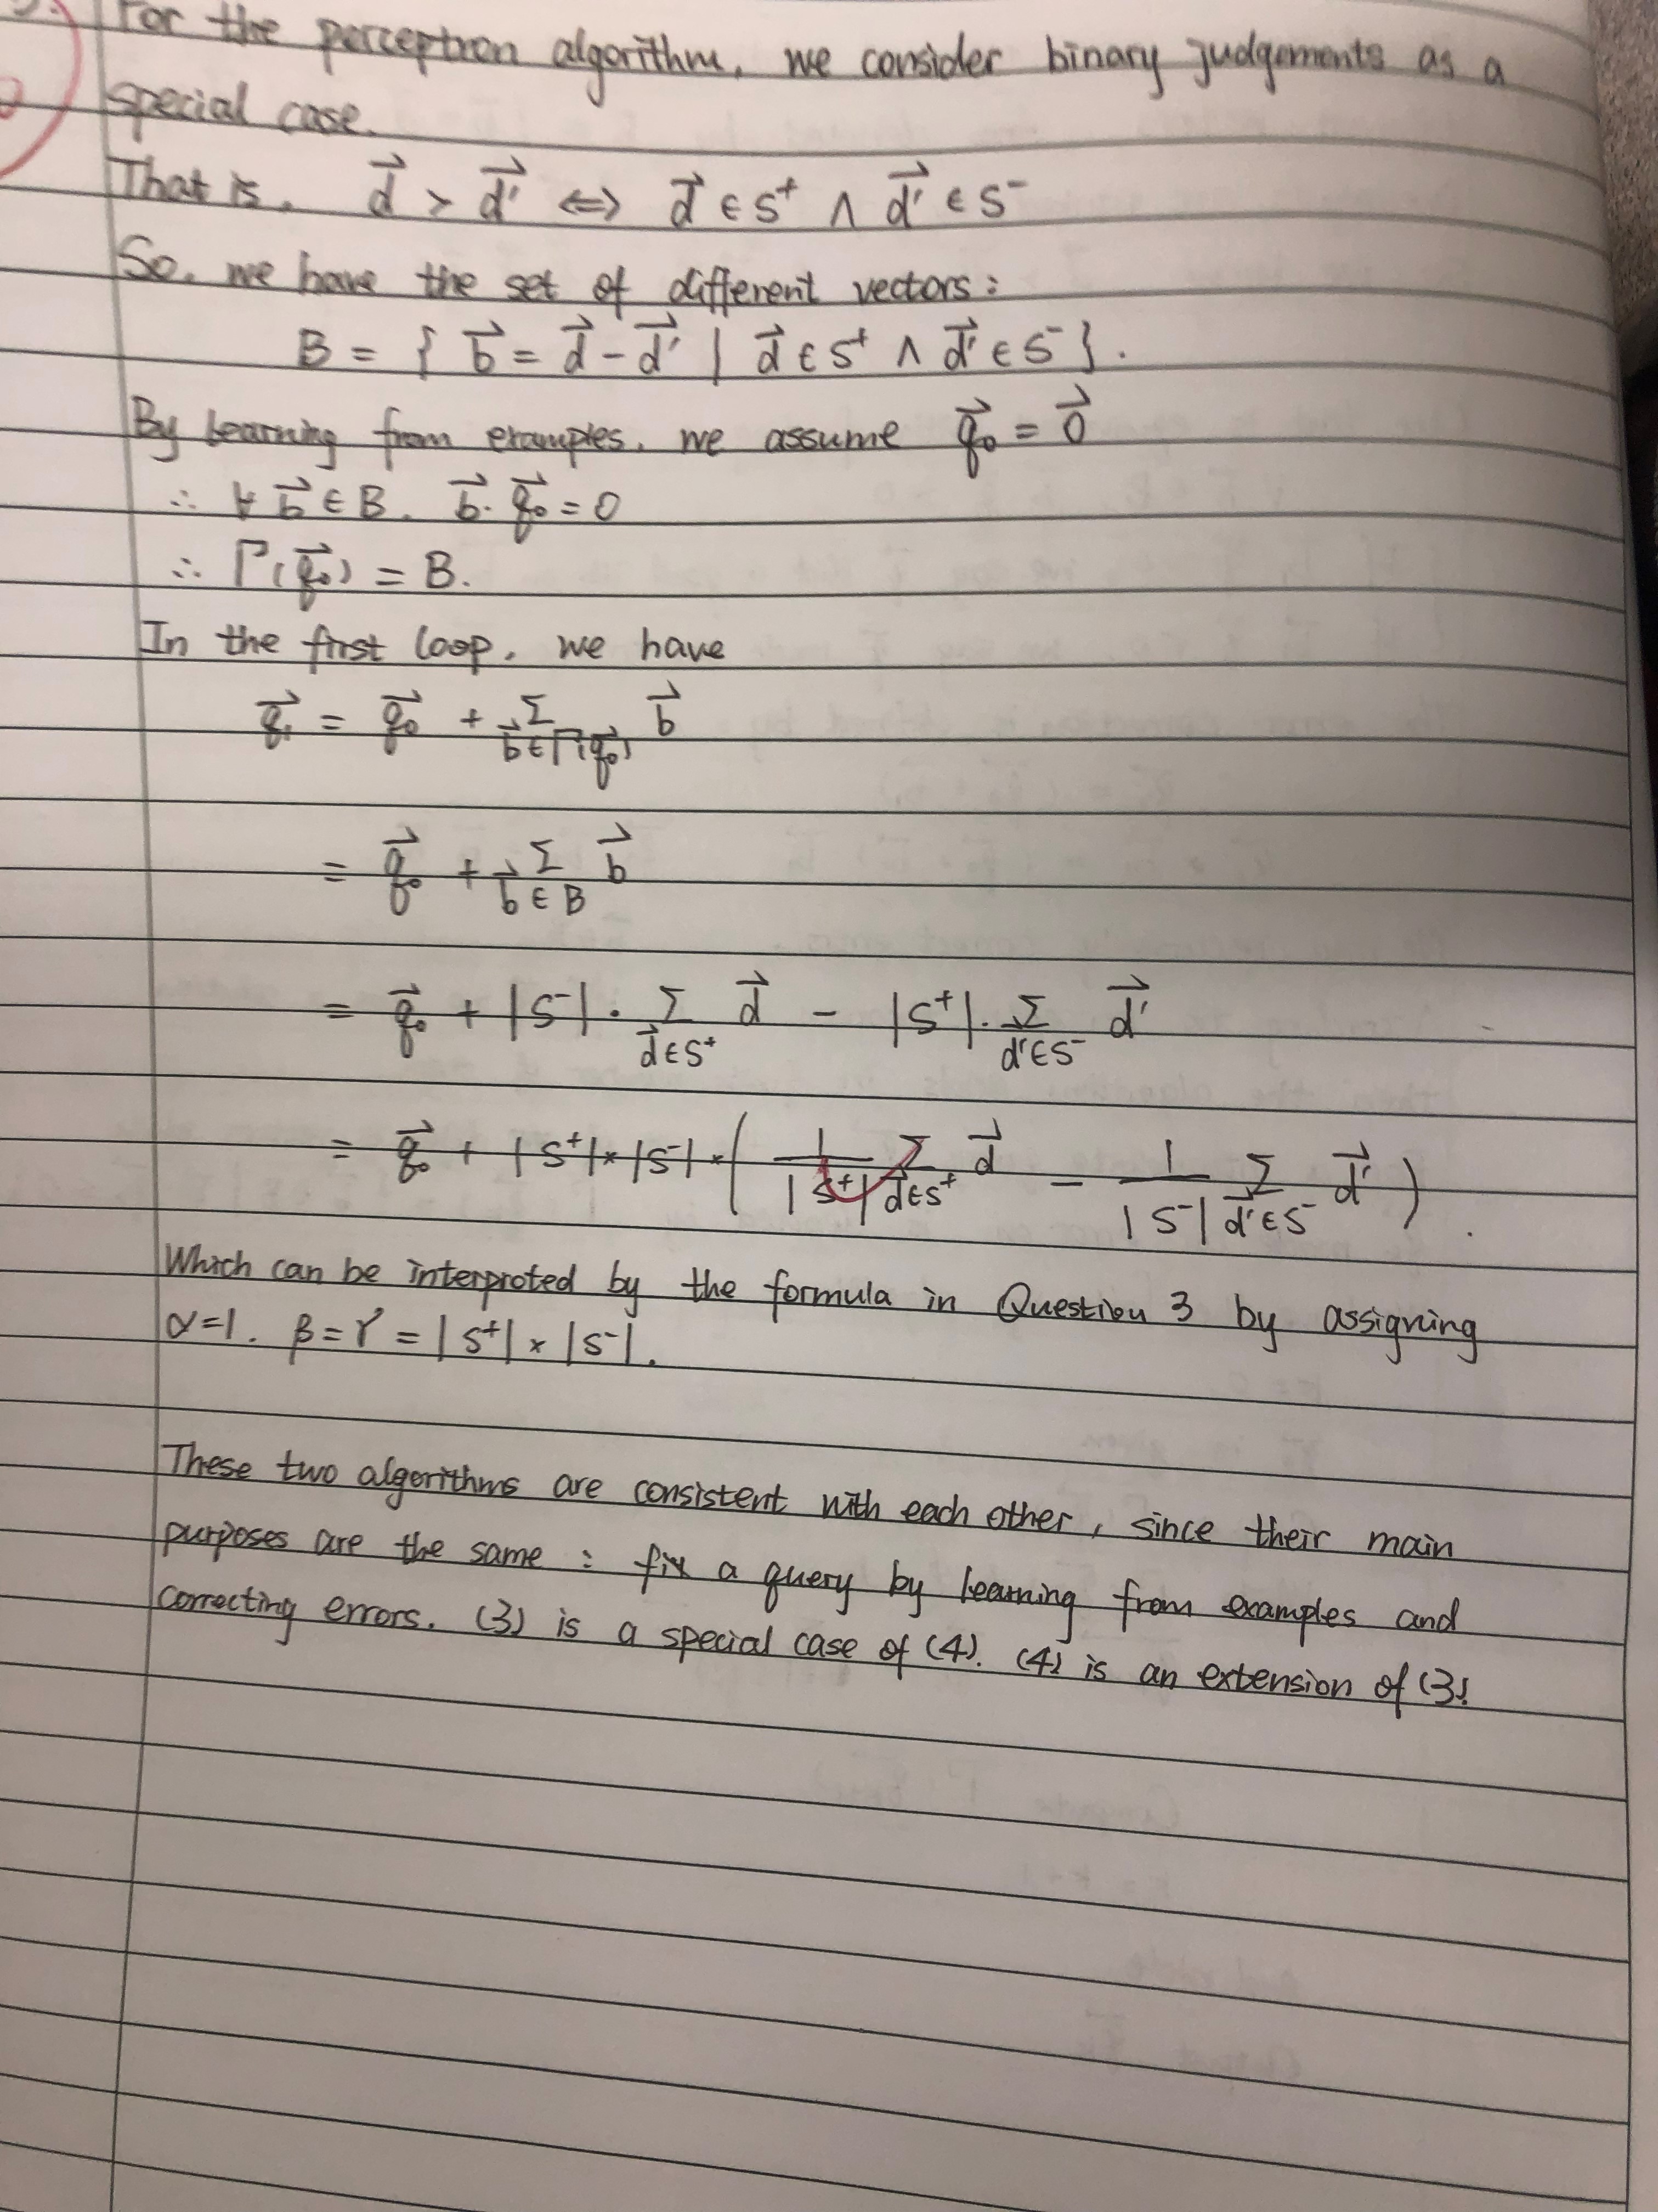 5. For the perceptron algorithm, we consider binary judgements as a
special case.
That is, d⃗ > d⃗' ⇔ d⃗ ∈ S⁺ ∧ d⃗' ∈ S⁻
So, we have the set of different vectors:
B = { b⃗ = d⃗ - d⃗' | d⃗ ∈ S⁺ ∧ d⃗' ∈ S⁻ }.
By learning from examples, we assume q⃗₀ = 0⃗
∴ ∀ b⃗ ∈ B, b⃗ · q⃗₀ = 0
∴ Γ(q⃗₀) = B.
In the first loop, we have
q⃗₁ = q⃗₀ + Σ_{b⃗∈Γ(q⃗₀)} b⃗
= q⃗₀ + Σ_{b⃗∈B} b⃗
= q⃗₀ + |S⁻| · Σ_{d⃗∈S⁺} d⃗ - |S⁺| · Σ_{d'∈S⁻} d⃗'
= q⃗₀ + |S⁺| × |S⁻| × ( 1/|S⁺| Σ_{d⃗∈S⁺} d⃗ - 1/|S⁻| Σ_{d⃗'∈S⁻} d⃗' ).
Which can be interproted by the formula in Question 3 by assigning
α=1. β=γ = |S⁺| × |S⁻|.
These two algorithms are consistent with each other, since their main
purposes are the same : fix a query by learning from examples and
correcting errors. (3) is a special case of (4). (4) is an extension of (3).